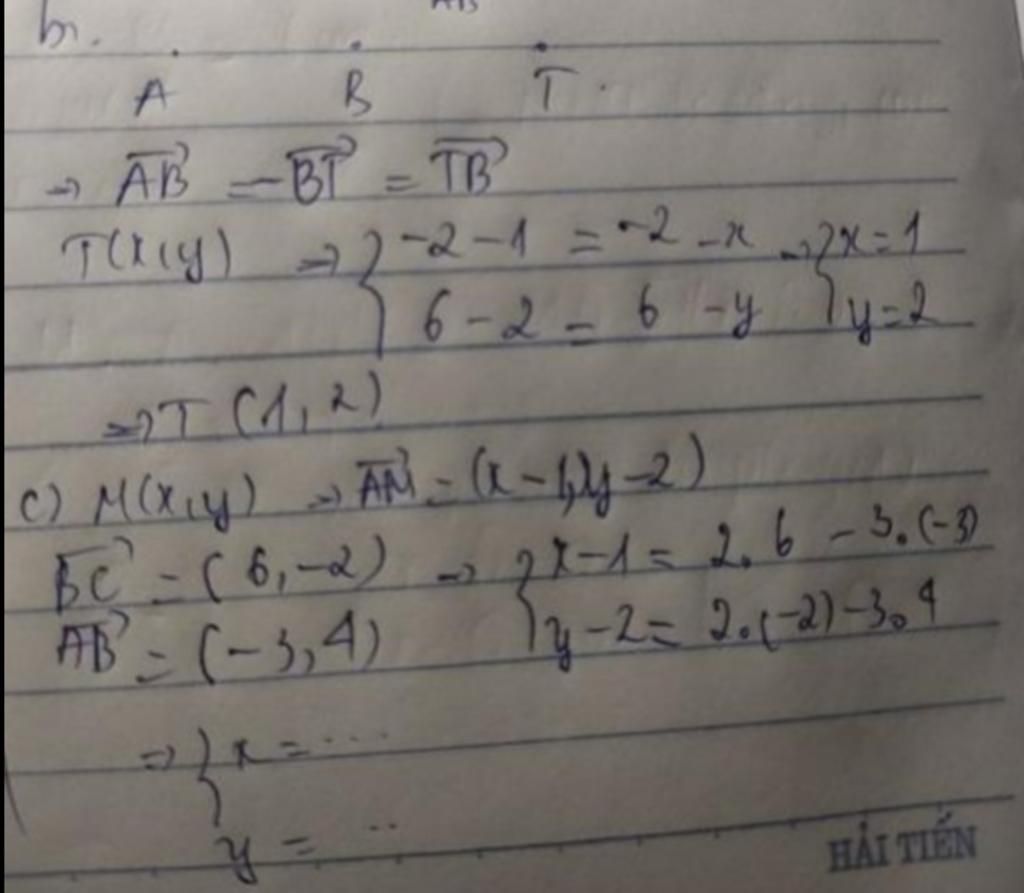 b.
A B T
→ AB = -BT = TB
T(x,y) → { -2-1 = -2-x → { x=1
6-2 = 6-y y=2
→ T (1,2)
c) M(x,y) → AM = (x-1, y-2)
BC = (6,-2) → { x-1 = 2.6 - 3.(-3)
AB = (-3,4) y-2 = 2.(-2)-3.4
⇒ { x = ...
y = ...
HẢI TIẾN